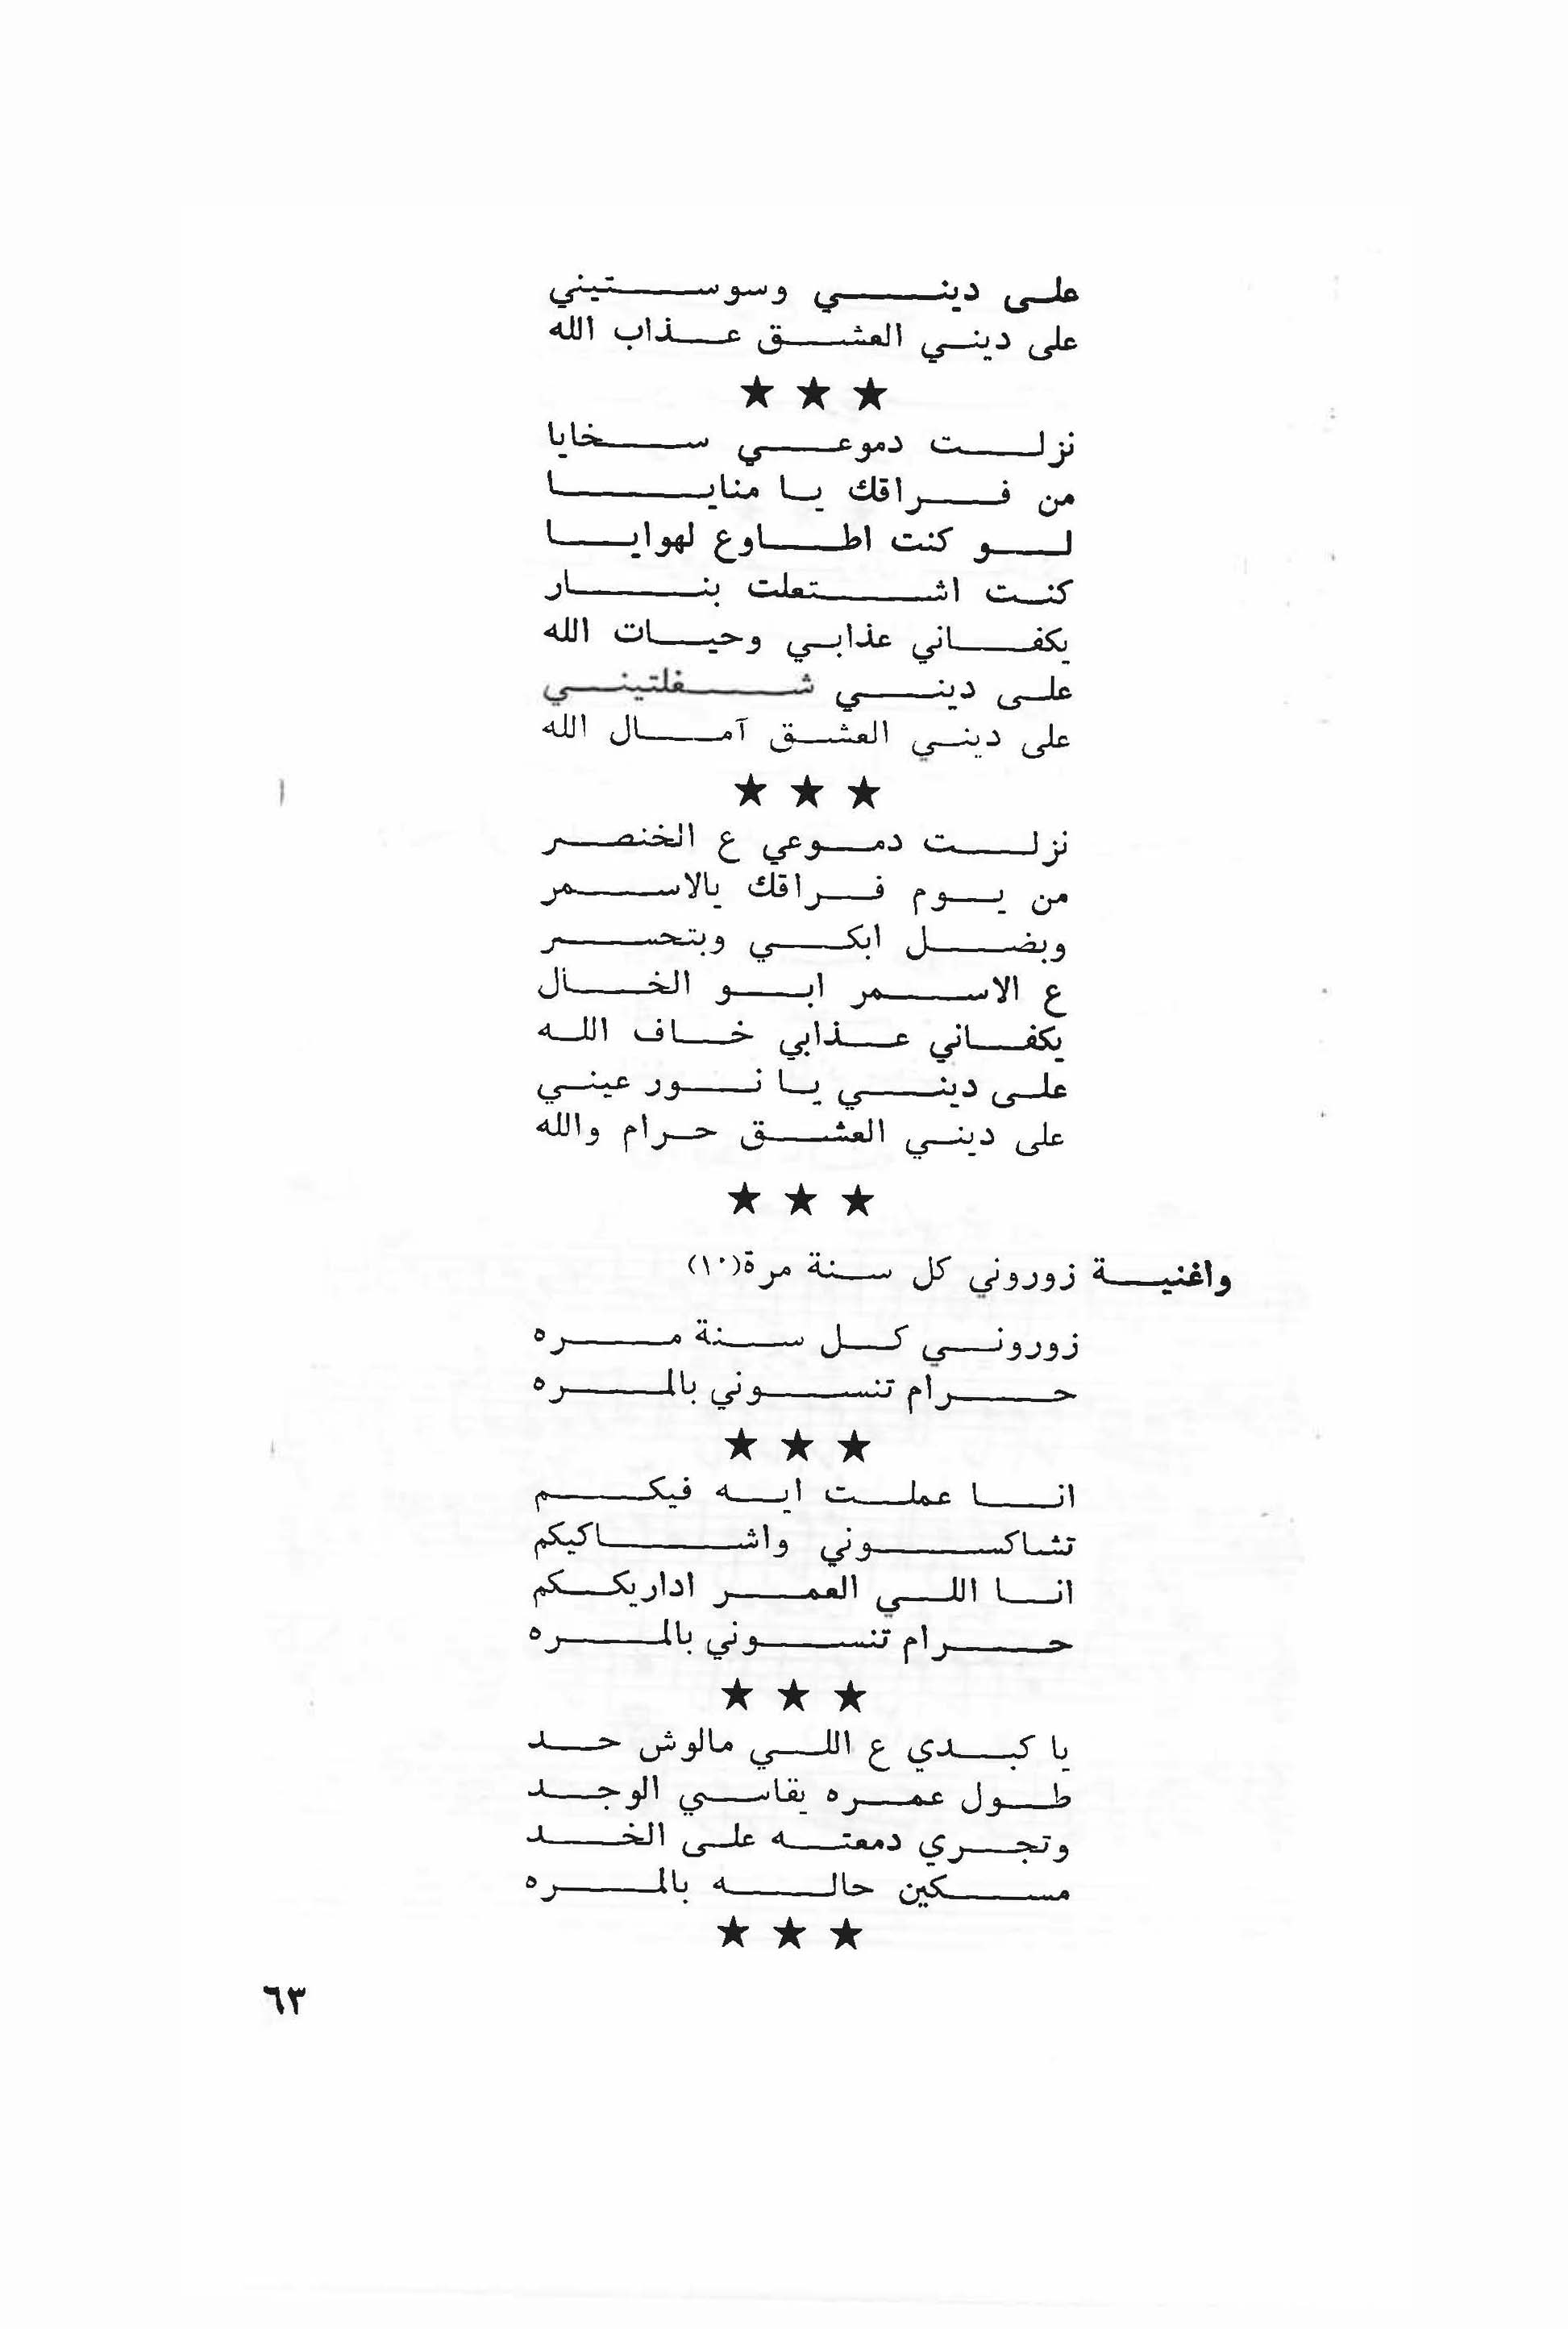 على ديني وسوستيني
على ديني العشق عذاب الله
★ ★ ★
نزلت دموعي سخايا
من فراقك يا منايا
لو كنت اطاوع لهوايا
كنت اشتعلت بنار
يكفاني عذابي وحيات الله
على ديني شغلتيني
على ديني العشق آمال الله
★ ★ ★
نزلت دموعي ع الخنصر
من يوم فراقك يالاسمر
وبضل ابكي وبتحسر
ع الاسمر ابو الخال
يكفاني عذابي خاف الله
على ديني يا نور عيني
على ديني العشق حرام والله
★ ★ ★
واغنية زوروني كل سنة مرة(١٠)
زوروني كل سنة مره
حرام تنسوني بالمره
★ ★ ★
انا عملت ايه فيكم
تشاكسوني واشاكيكم
انا اللي العمر اداريككم
حرام تنسوني بالمره
★ ★ ★
يا كبدي ع اللي مالوش حد
طول عمره يقاسي الوجد
وتجري دمعته على الخد
مسكين حاله بالمره
★ ★ ★
٦٣